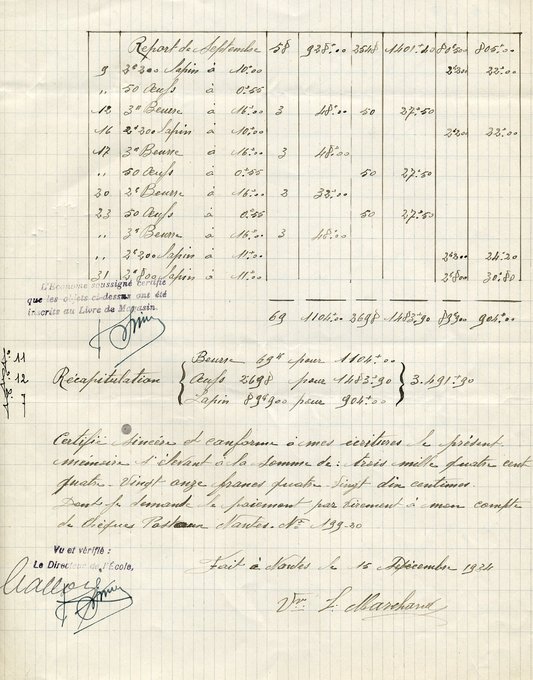 Report de Septembre 58 928"00 2548 1401"40 80"500 805"00
9 2"200 Lapin à 10"00 2"200 22"00
" 50 Œufs à 0"55
12 3" Beurre à 16"00 3 48"00 50 27"50
16 2"200 Lapin à 10"00 2"200 22"00
17 3" Beurre à 16"00 3 48"00
" 50 Œufs à 0"55 50 27"50
20 2" Beurre à 16"00 2 32"00
23 50 Œufs à 0"55 50 27"50
" 3" Beurre à 16"00 3 48"00
" 2"200 Lapin à 11"00 2"200 24"20
31 2"800 Lapin à 11"00 2"800 30"80
L'Econome soussigné certifie
que les objets ci-dessus ont été
inscrits au Livre de Magasin.
69 1104"00 2698 1483"90 89"900 904"00
11
12
7
Récapitulation
Beurre 69" pour 1104"00
Œufs 2698 pour 1483"90
Lapin 89"900 pour 904"00
3.491"90
Certifié sincère et conforme à mes écritures le présent
mémoire s'élevant à la somme de: trois mille quatre cent
quatre-vingt onze francs quatre vingt dix centimes.
Dont je demande le paiement par virement à mon compte
de chèques Postaux Nantes. No 199-20
Vu et vérifié :
Le Directeur de l'Ecole,
Fait à Nantes le 15 Décembre 1934
Vve L. Marchand